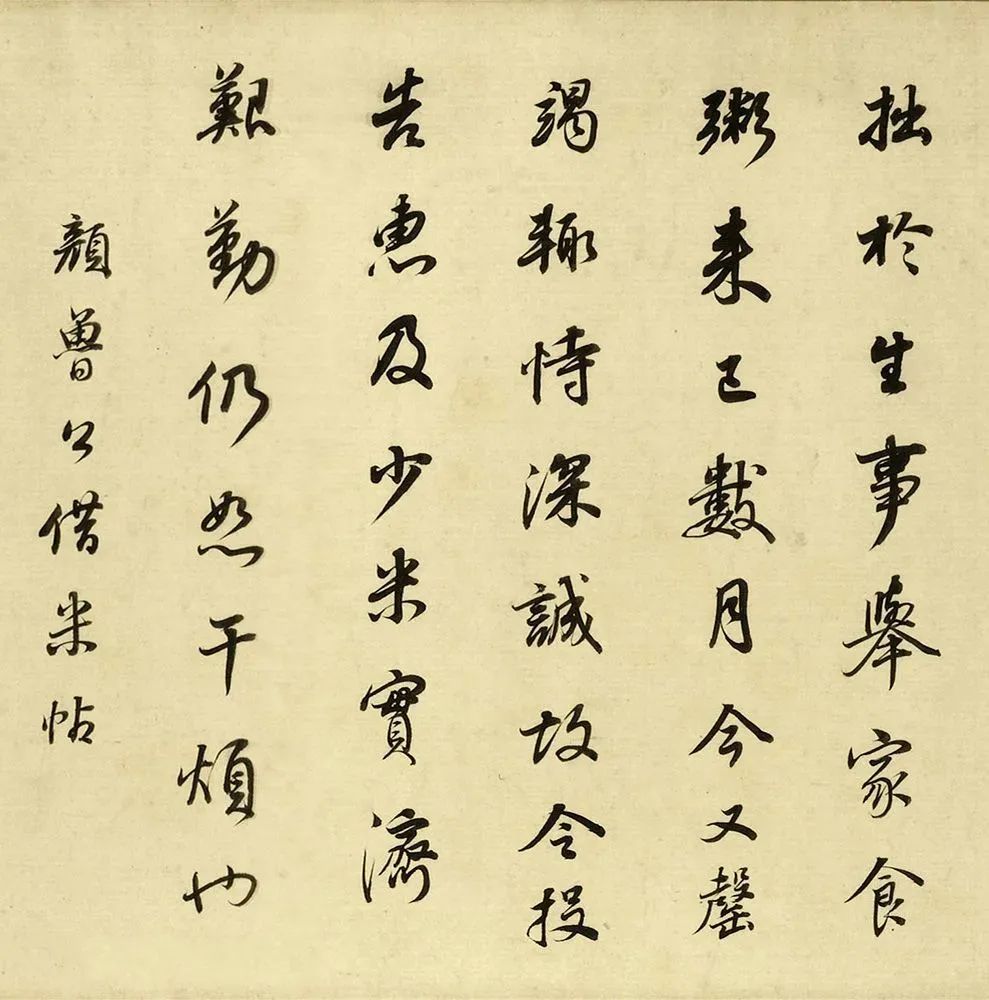 拙於生事舉家食
粥来已數月今又罄
竭輙恃深誠故令投
告惠及少米實濟
艱勤仍恕干煩也
顏魯公借米帖